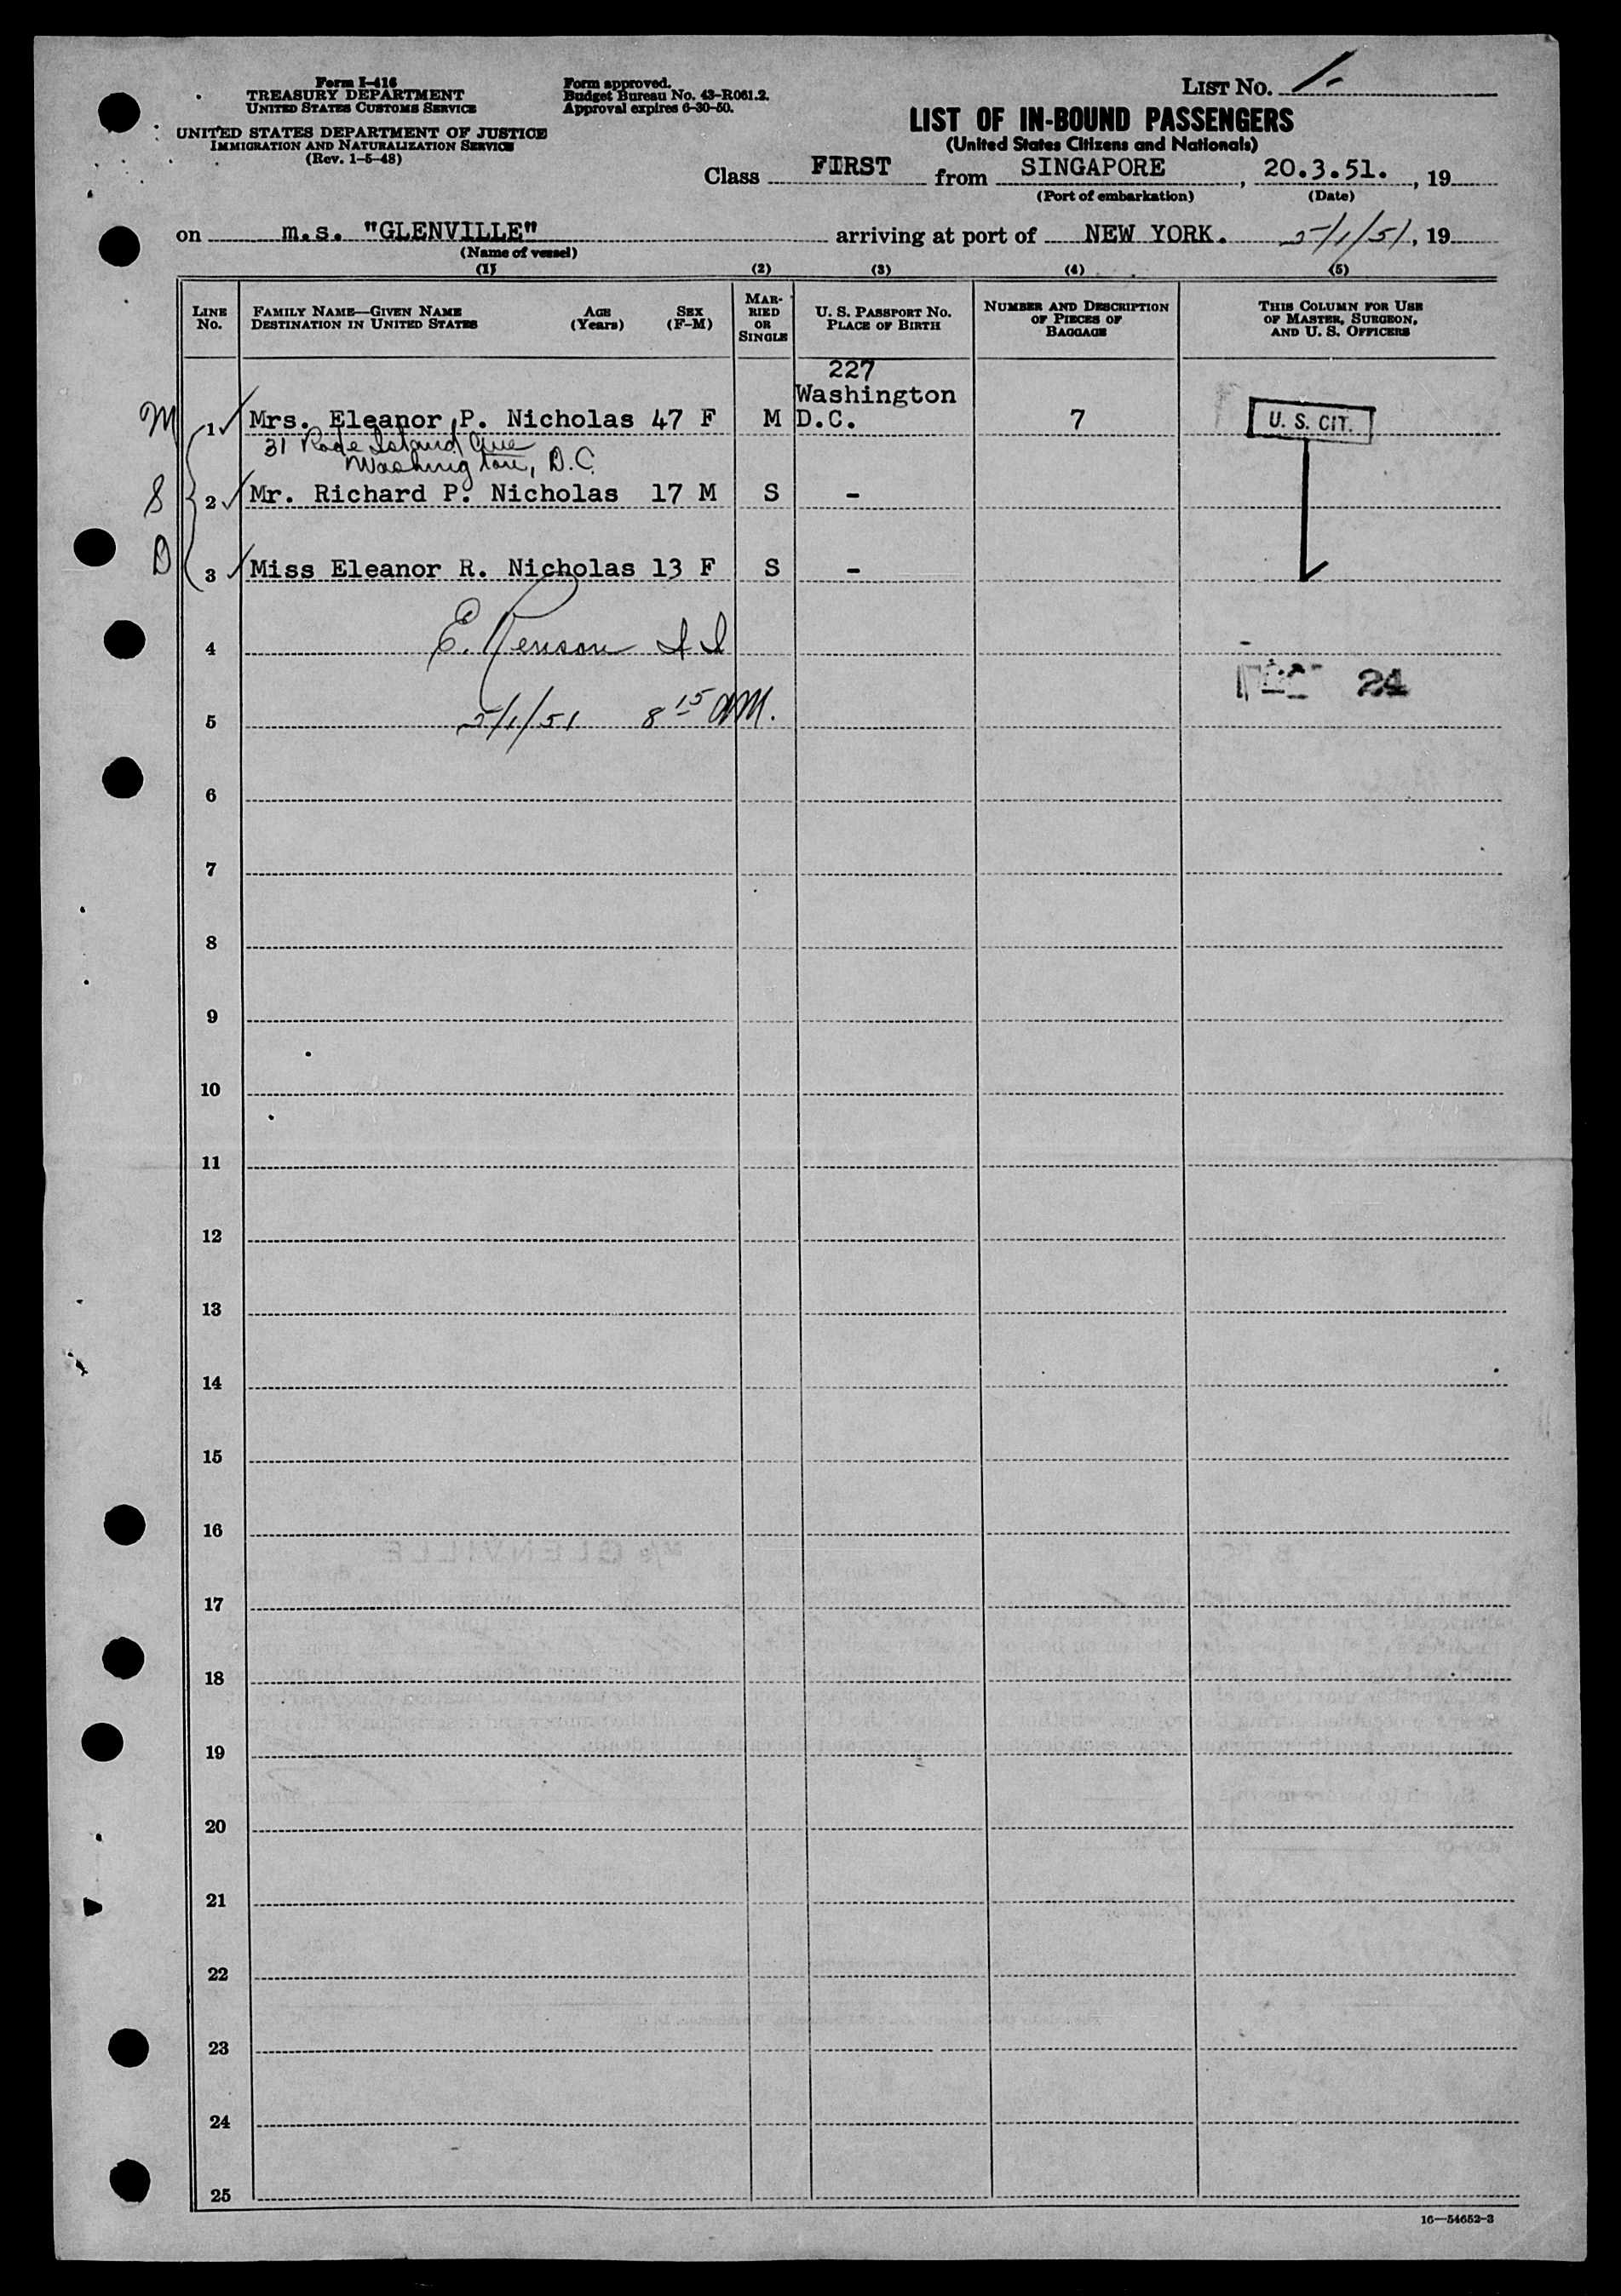 Form I-416
TREASURY DEPARTMENT
UNITED STATES CUSTOMS SERVICE
UNITED STATES DEPARTMENT OF JUSTICE
IMMIGRATION AND NATURALIZATION SERVICE
(Rev. 1-5-48)
Form approved.
Budget Bureau No. 43-R061.2.
Approval expires 6-30-50.
LIST NO. 1-
LIST OF IN-BOUND PASSENGERS
(United States Citizens and Nationals)
Class FIRST from SINGAPORE, 20.3.51., 19
(Port of embarkation) (Date)
on m.s. "GLENVILLE" arriving at port of NEW YORK. 5/1/51, 19
(Name of vessel)
(1) (2) (3) (4) (5)
LINE NO.
FAMILY NAME—GIVEN NAME
DESTINATION IN UNITED STATES
AGE (Years)
SEX (F-M)
MARRIED OR SINGLE
U. S. PASSPORT NO.
PLACE OF BIRTH
NUMBER AND DESCRIPTION OF PIECES OF BAGGAGE
THIS COLUMN FOR USE OF MASTER, SURGEON, AND U. S. OFFICERS
227
Washington
M 1 Mrs. Eleanor P. Nicholas 47 F M D.C. 7 U. S. CIT.
31 Rode Island Ave
Washington, D.C.
S 2 Mr. Richard P. Nicholas 17 M S -
D 3 Miss Eleanor R. Nicholas 13 F S -
4 E. Renison I I
24
5 5/1/51 8 15 AM.
6
7
8
9
10
11
12
13
14
15
16
17
18
19
20
21
22
23
24
25
16—54652-3